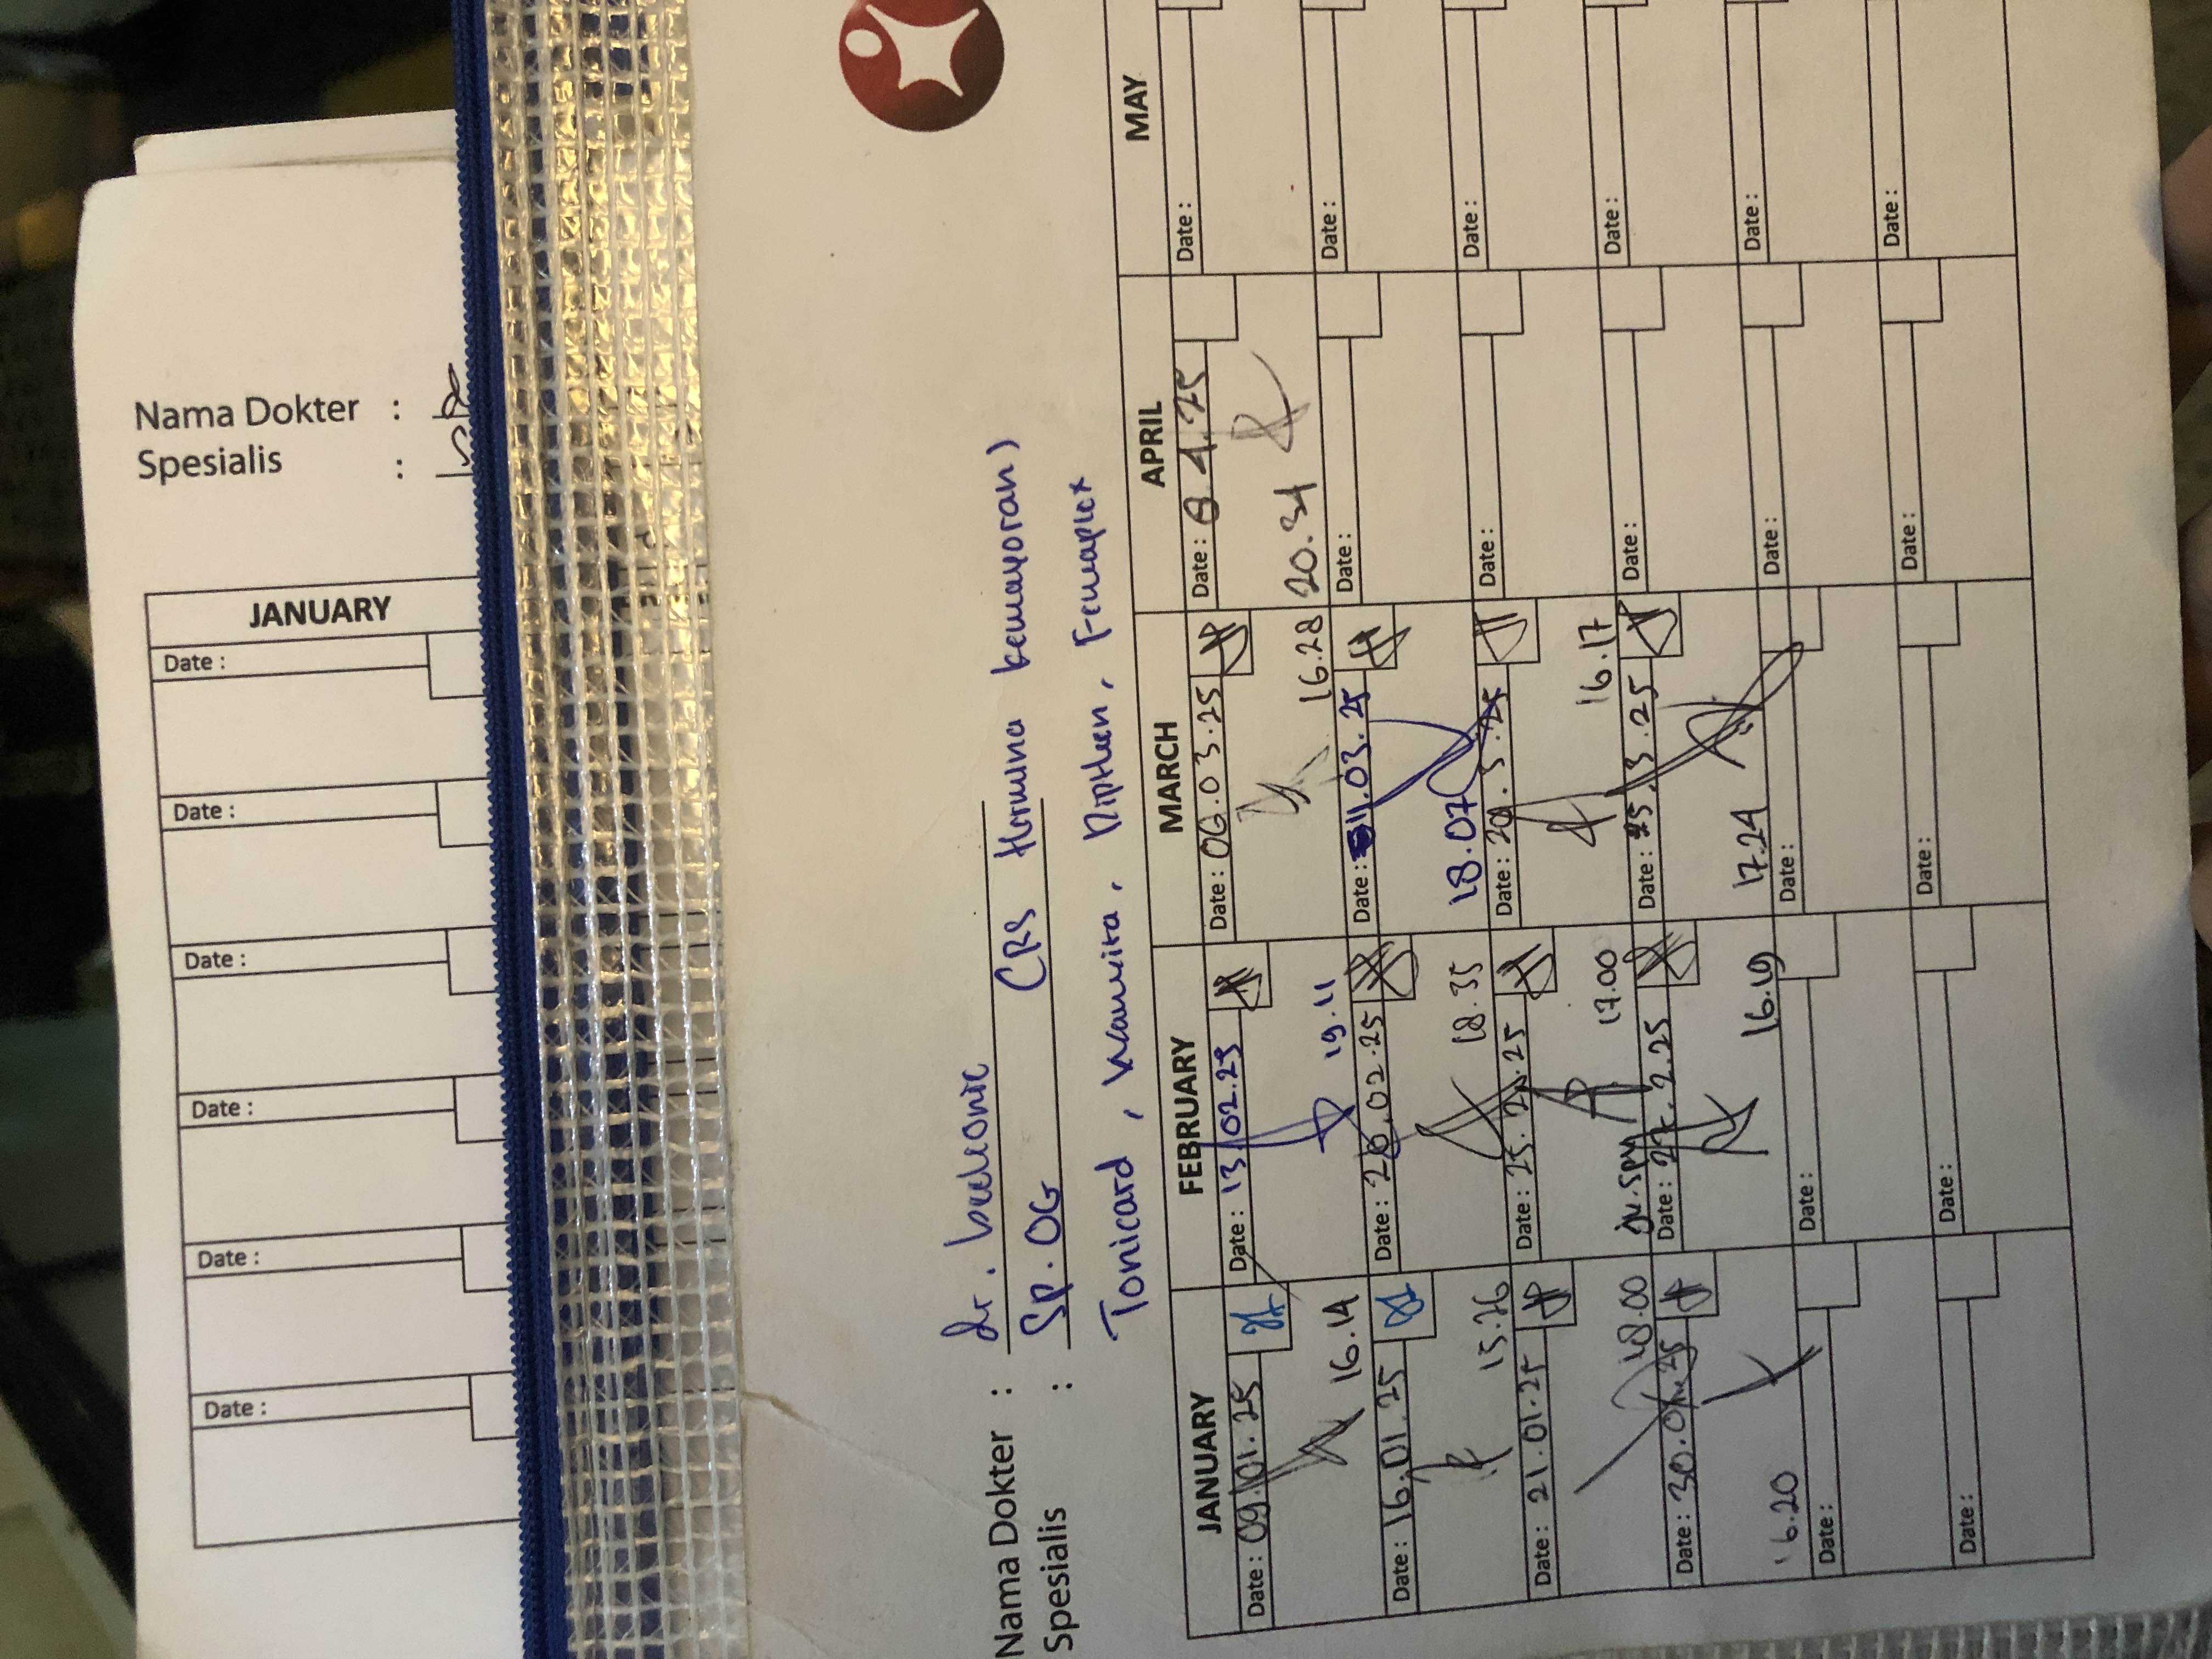 Nama Dokter :
Spesialis :
JANUARY
Date :
Date :
Date :
Date :
Date :
Date :
Nama Dokter : dr.
Spesialis : Sp. OG (RS Hermina kemayoran)
Tonicard, , , Femaplex
JANUARY FEBRUARY MARCH APRIL MAY
Date : 09.01.25 Date : 13/02.25 Date : 06.03.25 Date : 8 4.25 Date :
16.14 19.11 16.28 20.34
Date : 16.01.25 Date : 20.02.25 Date : 11.03.25 Date : Date :
15.26 18.35 18.07
Date : 21.01.25 Date : 25.2.25 Date : 20.3.25 Date : Date :
18.00 17.00 16.17
Date : 30.01.25 Date : 27.2.25 Date : 25.3.25 Date : Date :
16.20 16.19 17.24
Date : Date : Date : Date : Date :
Date : Date : Date : Date : Date :